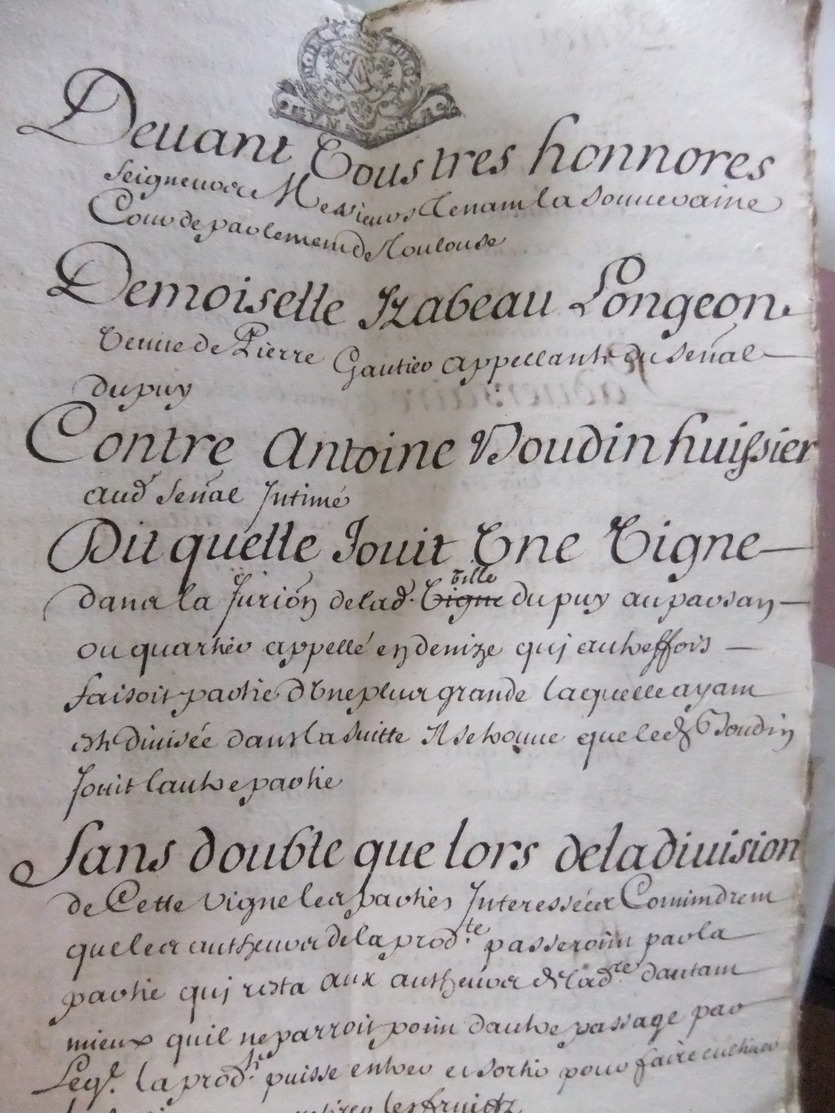 Deuant Vous tres honnores
seigneurs Messieurs tenant la souueraine
Cour de parlement de Toulouse
Demoiselle Izabeau Longeon
Veuue de Pierre Gautier appellante du senal
du puy
Contre Antoine Boudin huissier
aud senal Intimé
Dit quelle Jouit Vne Vigne
dans la Jurion de lad. Vigne ville du puy au parsan
ou quartier appellé en denize qui autreffois
faisoit partie dVne plus grande laquelle ayant
esté diuisée dans la suitte Il se trouue que led Boudin
Jouit lautre partie
Sans double que lors de la diuision
de Cette Vigne les parties Interessées Conuindrent
que les autheurs de la prodte passeroint par la
partie qui resta aux autheurs de ladte dautant
mieux quil ne parroit point dautre passage par
Leql la prodte puisse entrer et sortir pour faire cultiuer
les fruitz